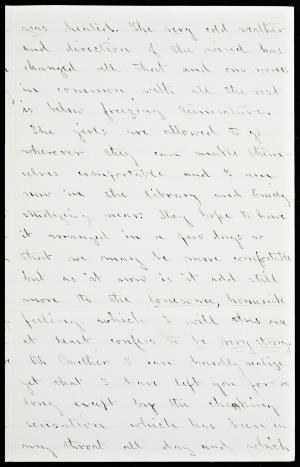 was heated. The very cold weather
and direction of the wind has
changed all that and our rooms
in common with all the rest
is below freezing temperature.
The girls are allowed to go
wherever they can make them-
selves comfortable and I am
now in the library and Emily
studying near. They hope to have
it arranged in a few days so
that we may be more comfortable
but as it now is it add still
more to the lonesome, homesick
feeling which I will this once
at least confess to be very strong.
Oh Mother I can hardly realize
yet that I have left you for so
long except by the choking
sensation which has been in
my throat all day and which